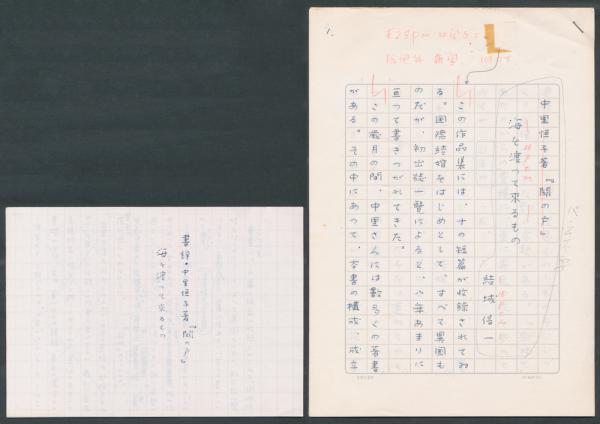 中里恒子著『関の戸』
海を渡って来るもの
結城信一
この作品集には、十の短篇が収録されてゐ
る。国際結婚をはじめとして、すべて異国も
のだが、初出誌一覧によると、八年あまりに
亘って書きつがれてきた。
この歳月の間、中里さんには数多くの著書
がある。その中にあって、本書の構成、成立
書評・中里恒子著『関の戸』
海を渡って来るもの